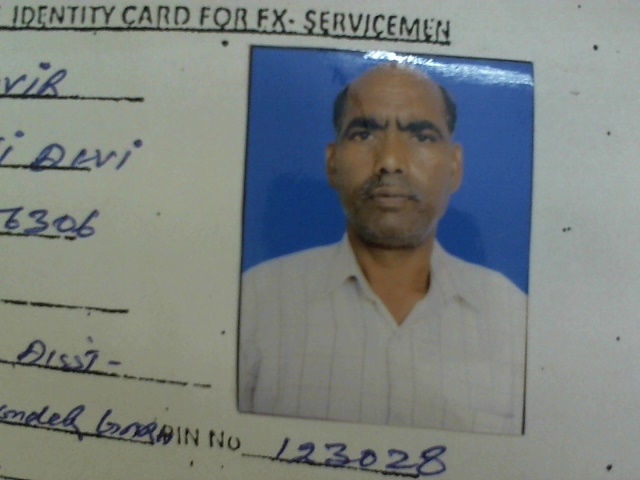 IDENTITY CARD FOR EX- SERVICEMEN
VIR
DEVI
6306
DISTT-
PIN NO 123028